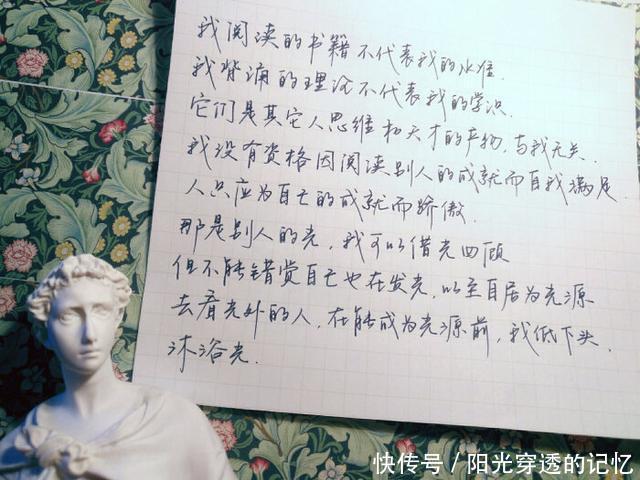 我阅读的书籍不代表我的水准.
我背诵的理论不代表我的学识.
它们是其它人思维和天才的产物,与我无关.
我没有资格因阅读别人的成就而自我满足.
人只应为自己的成就而骄傲.
那是别人的光,我可以借光四顾
但不能错觉自己也在发光,以至自居为光源
去看光外的人,在能成为光源前,我低下头.
沐浴光.
快传号/阳光穿透的记忆